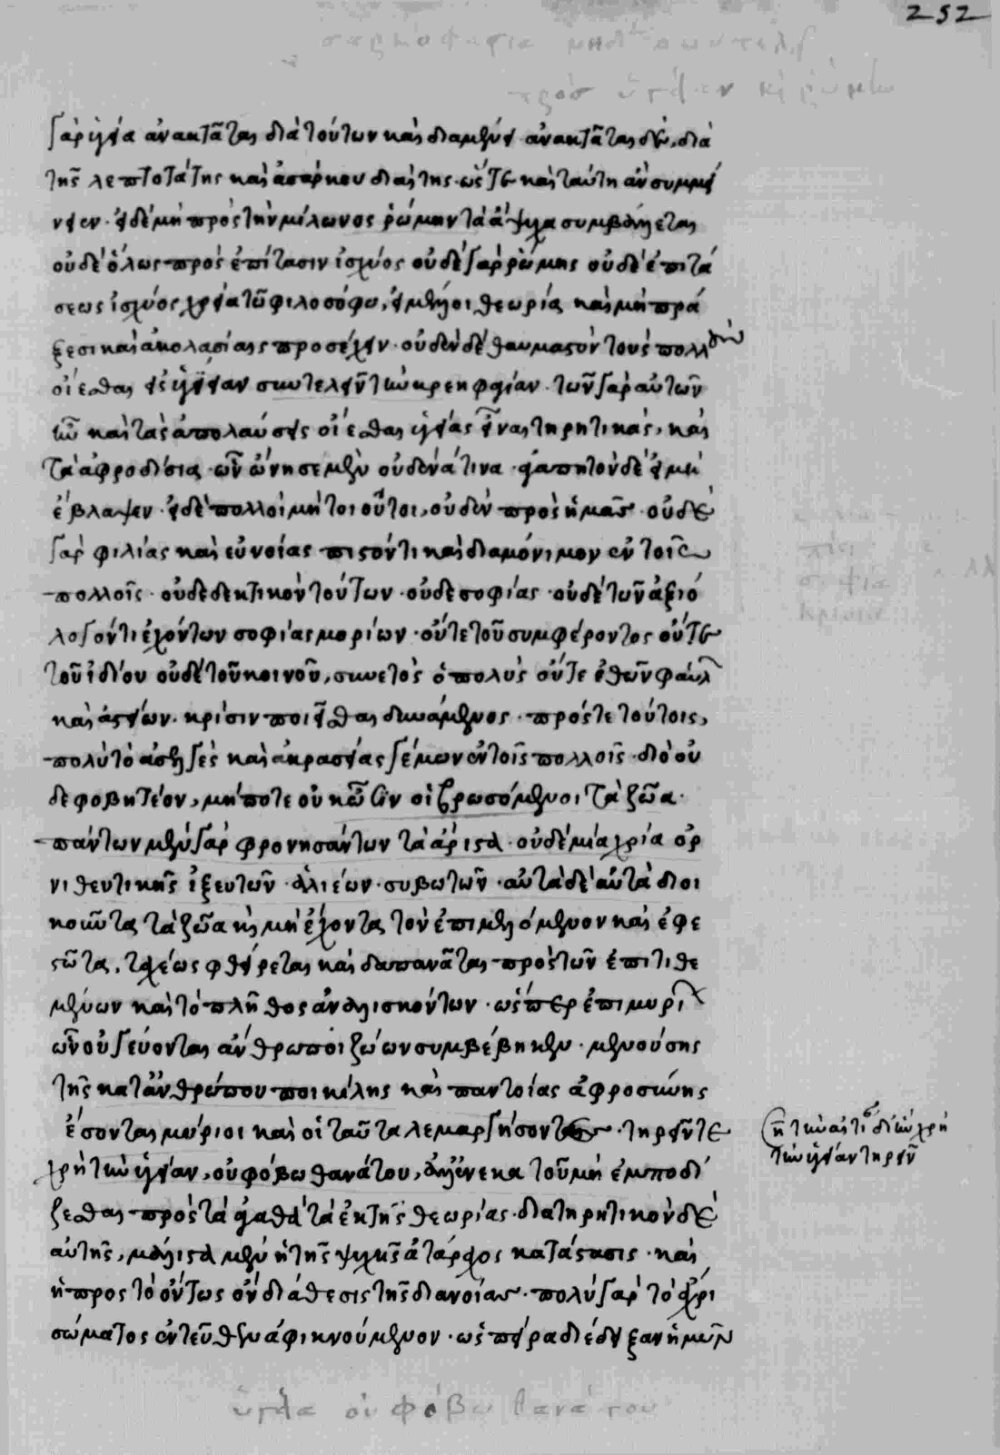 252
σαρκοφαγία μηδὲ συντελεῖ
πρὸς ὑγείαν καὶ ῥώμην
γὰρ ὑγεία ἀνακτᾶται διὰ τούτων καὶ διαμένει ἀνακτᾶται δὲ, διὰ
τῆς λεπτοτάτης καὶ ἀσάρκου διαίτης· ὥστε καὶ ταύτη ἂν συμμεί
νειεν· εἰ δὲ μὴ πρὸς τὴν μίλωνος ῥώμην τὰ ἄψυχα συμβάλλεται
οὐδὲ ὅλως πρὸς ἐπίτασιν ἰσχύος οὐδὲ γὰρ ῥώμης οὐδὲ ἐπιτά
σεως ἰσχύος χρεία τῶ φιλοσόφω, εἰ μέλλοι θεωρία καὶ μὴ πρά
ξεσι καὶ ἀκολασίαις προσέχειν· οὐδὲν δὲ θαυμαστὸν τοὺς πολλοὺς
οἴεσθαι εἰς ὑγείαν συντελεῖν τὴν κρεηφαγίαν· τῶν γὰρ αὐτῶν
ἦν καὶ τὰς ἀπολαύσεις οἴεσθαι ὑγείας εἶναι τηρητικάς, καὶ
τὰ ἀφροδίσια· ὧν ὤνησε μὲν οὐδένα τινα· ἀγαπητὸν δὲ εἰ μὴ
ἔβλαψεν· εἰ δὲ πολλοὶ μὴ τοιοῦτοι, οὐδὲν πρὸς ἡμᾶς· οὐδὲ
γὰρ φιλίας καὶ εὐνοίας πιστόν τι καὶ διαμόνιμον ἐν τοῖς
πολλοῖς· οὐδὲ δεκτικὸν τούτων· οὐδὲ σοφίας· οὐδὲ τῶν ἀξιό
λογόν τι ἐχόντων σοφίας μορίων· οὔτε τοῦ συμφέροντος οὔτε
τοῦ ἰδίου οὐδὲ τοῦ κοινοῦ, συνετὸς ὁ πολὺς οὔτε ἐθῶν φαύλων
καὶ ἀστείων· κρίσιν ποιεῖσθαι δυνάμενος· πρός τε τούτοις,
πολὺ τὸ ἀσελγὲς καὶ ἀκρασίας γέμων ἐν τοῖς πολλοῖς· διὸ οὐ
δὲ φοβητέον, μήποτε οὐκ ὦσιν οἱ βρωσόμενοι τὰ ζῶα·
πάντων μὲν γὰρ φρονησάντων τὰ ἄριστα· οὐδεμία χρεία ὀρ
νιθευτικῆς ἰξευτῶν· ἁλιέων· συβωτῶν· αὐτὰ δὲ αὑτὰ διοι
κοῦντα τὰ ζῶα καὶ μὴ ἔχοντα τὸν ἐπιμελόμενον καὶ ἐφε
στῶτα, ταχέως φθείρεται καὶ δαπανᾶται πρὸς τῶν ἐπιτιθε
μένων καὶ τὸ πλῆθος ἀναλισκόντων· ὥσπερ ἐπὶ μυρίων
ὧν οὐ γεύονται ἄνθρωποι ζώων συμβέβηκεν· μενούσης
τῆς κατ' ἀνθρώπου ποικίλης καὶ παντοίας ἀφροσύνης
ἔσονται μύριοι καὶ οἱ ταῦτα λεμαργήσοντες· τηρεῖν τε
χρὴ τὴν ὑγείαν, οὐ φόβω θανάτου, ἀλλ' ἕνεκα τοῦ μὴ ἐμποδί
ζεσθαι πρὸς τὰ ἀγαθὰ τὰ ἐκ τῆς θεωρίας· διατηρητικὸν δὲ
αὐτῆς, μάλιστα μὲν ἡ τῆς ψυχῆς ἀτάραχος κατάστασις· καὶ
ἡ πρὸς τὸ ὄντως ὂν διάθεσις τῆς διανοίας· πολὺ γὰρ τὸ ἄχρι
σώματος ἐντεῦθεν ἀφικνούμενον· ὡς πείρα διέδειξαν ἡμῶν
τὴν αἰτίαν δι' ἣν χρὴ
τὴν ὑγείαν τηρεῖν
ὑγεία οὐ φόβω θανάτου